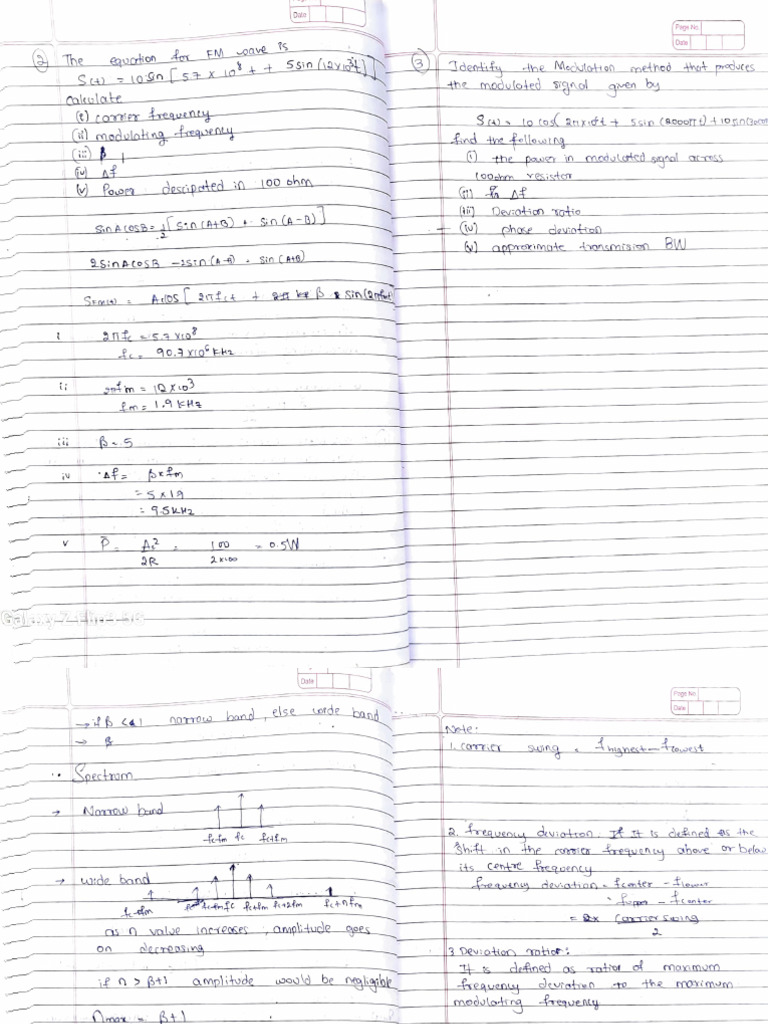 Date
② The equation for FM wave is
S(t) = 10 sin [ 5.7 × 10⁸ t + 5 sin (12×10³t) ]
Calculate
(i) carrier frequency
(ii) modulating frequency
(iii) β
(iv) Δf
(v) Power descipated in 100 ohm
sinAcosB = 1/2 [ sin (A+B) + sin (A-B) ]
2sinAcosB - 2sin (A-B) + sin (A+B)
= Accos [ 2πfct + β sin(2πfmt)
i 2πfc = 5.7×10⁸
fc = 90.7×10⁶ KHz
ii 2πfm = 12×10³
fm = 1.9 KHz
iii β = 5
iv Δf = β×fm
= 5×1.9
= 9.5 KHz
v P = Ac²/2R = 100/2×100 = 0.5W
Galaxy Z Flip
Page No.
Date
③ Identify the Modulation method that produces
the modulated signal given by
S(t) = 10 cos( 2π×10⁶t + 5sin (2000πt) + 10sin(3000
find the following
(i) the power in modulated signal across
100ohm resistor
(ii) Δf
(iii) Deviation ratio
(iv) phase deviation
(v) approximate transmision BW
Date
→ if β <<1 narrow band, else wide band
→ β
Spectrum
→ Narrow band
fc-fm fc fc+fm
→ wide band
fc-fm fc fc+fm fc+2fm fc+nfm
as n value increases, amplitude goes
on decreasing
if n > β+1 amplitude would be negligible
nmax = β+1
Page No.
Date
Note:
1. carrier swing = fhighest - flowest
2. frequency deviation: It is defined as the
shift in the carrier frequency above or below
its centre frequency
frequency deviation = fcenter - flower
= fupper - fcenter
= carrier swing
2
3 Deviation ratio:
It is defined as ratio of maximum
frequency deviation to the maximum
modulating frequency